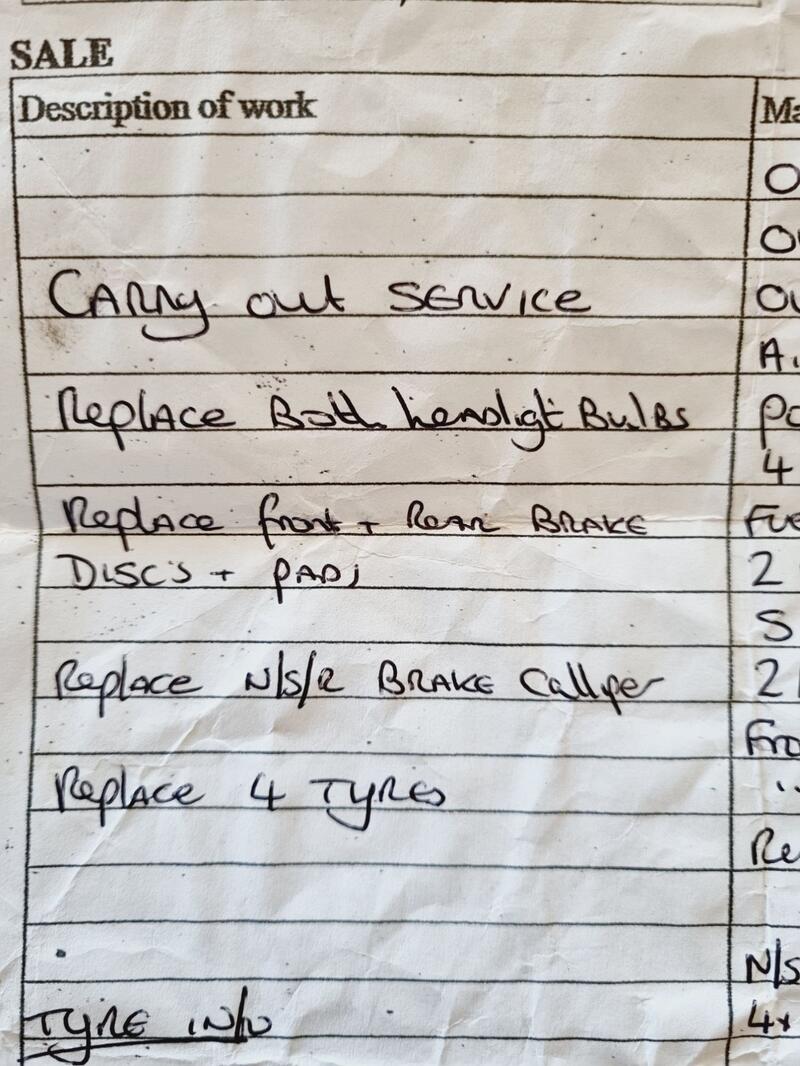 SALE
Description of work Ma
O
OU
CARRY out SERVICE OU
A.
Replace Both headligt Bulbs
4
Replace front + Rear BRAKE FUE
DISC'S + PADS 2
S
Replace N/S/R BRAKE Calliper 2
Fro
Replace 4 TYRES "
Re
N/S
TYRE INV 4x